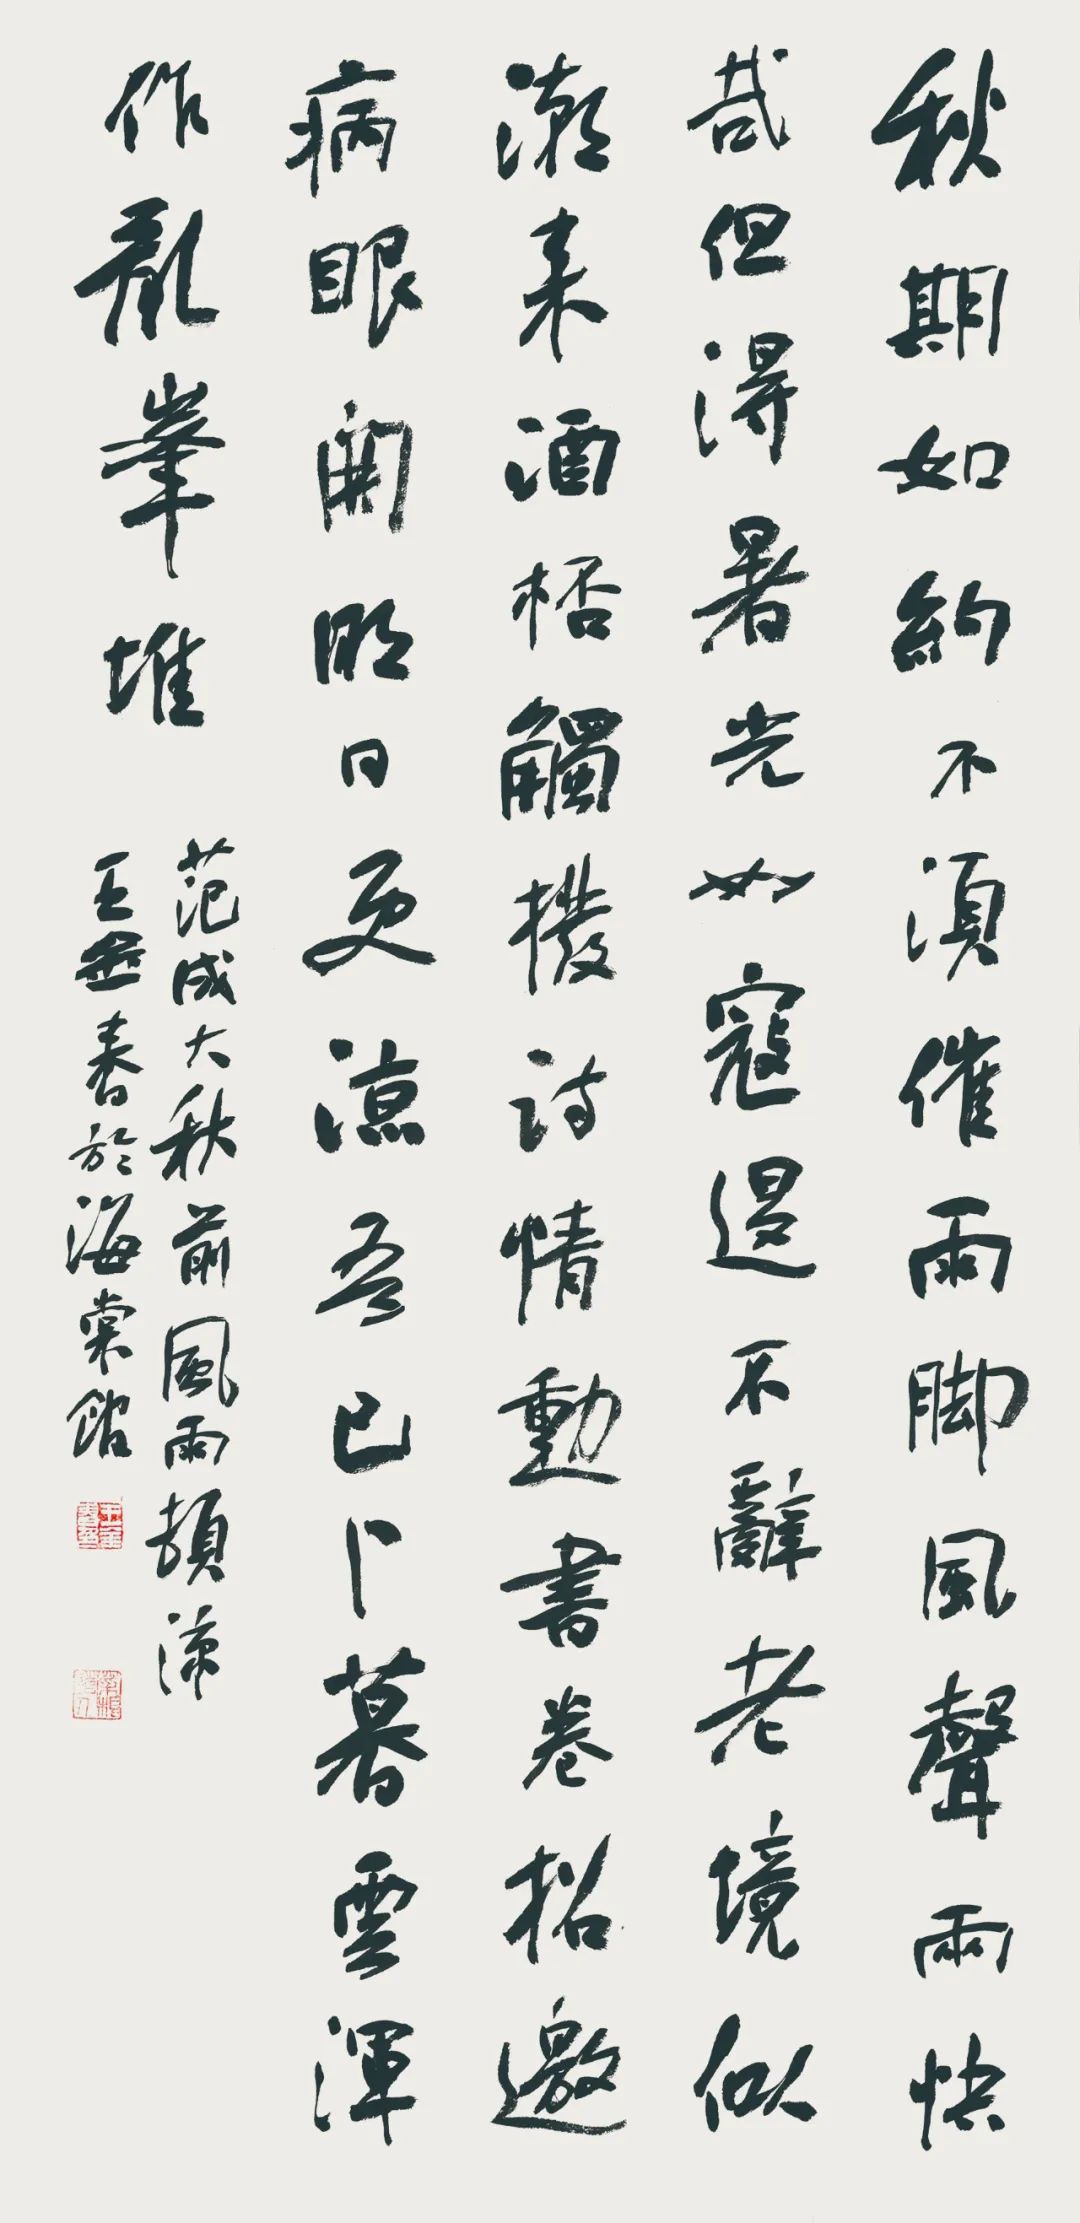 秋期如約不須催雨脚風聲兩快
哉但得暑光如寇退不辭老境似
潮來酒桮觸撥詩情動書卷招邀
病眼開明日更涼吾已卜暮雲渾
作亂峯堆
范成大秋前風雨頓涼
王春於海棠館